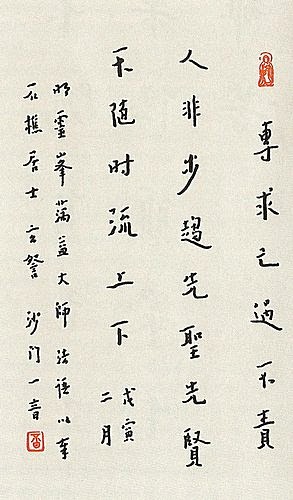 專求己過不責
人非步趨先聖先賢
不随时流上下
戊寅
二月
明靈峯蕅益大师法語以奉
石樵居士玄詧 沙门一音